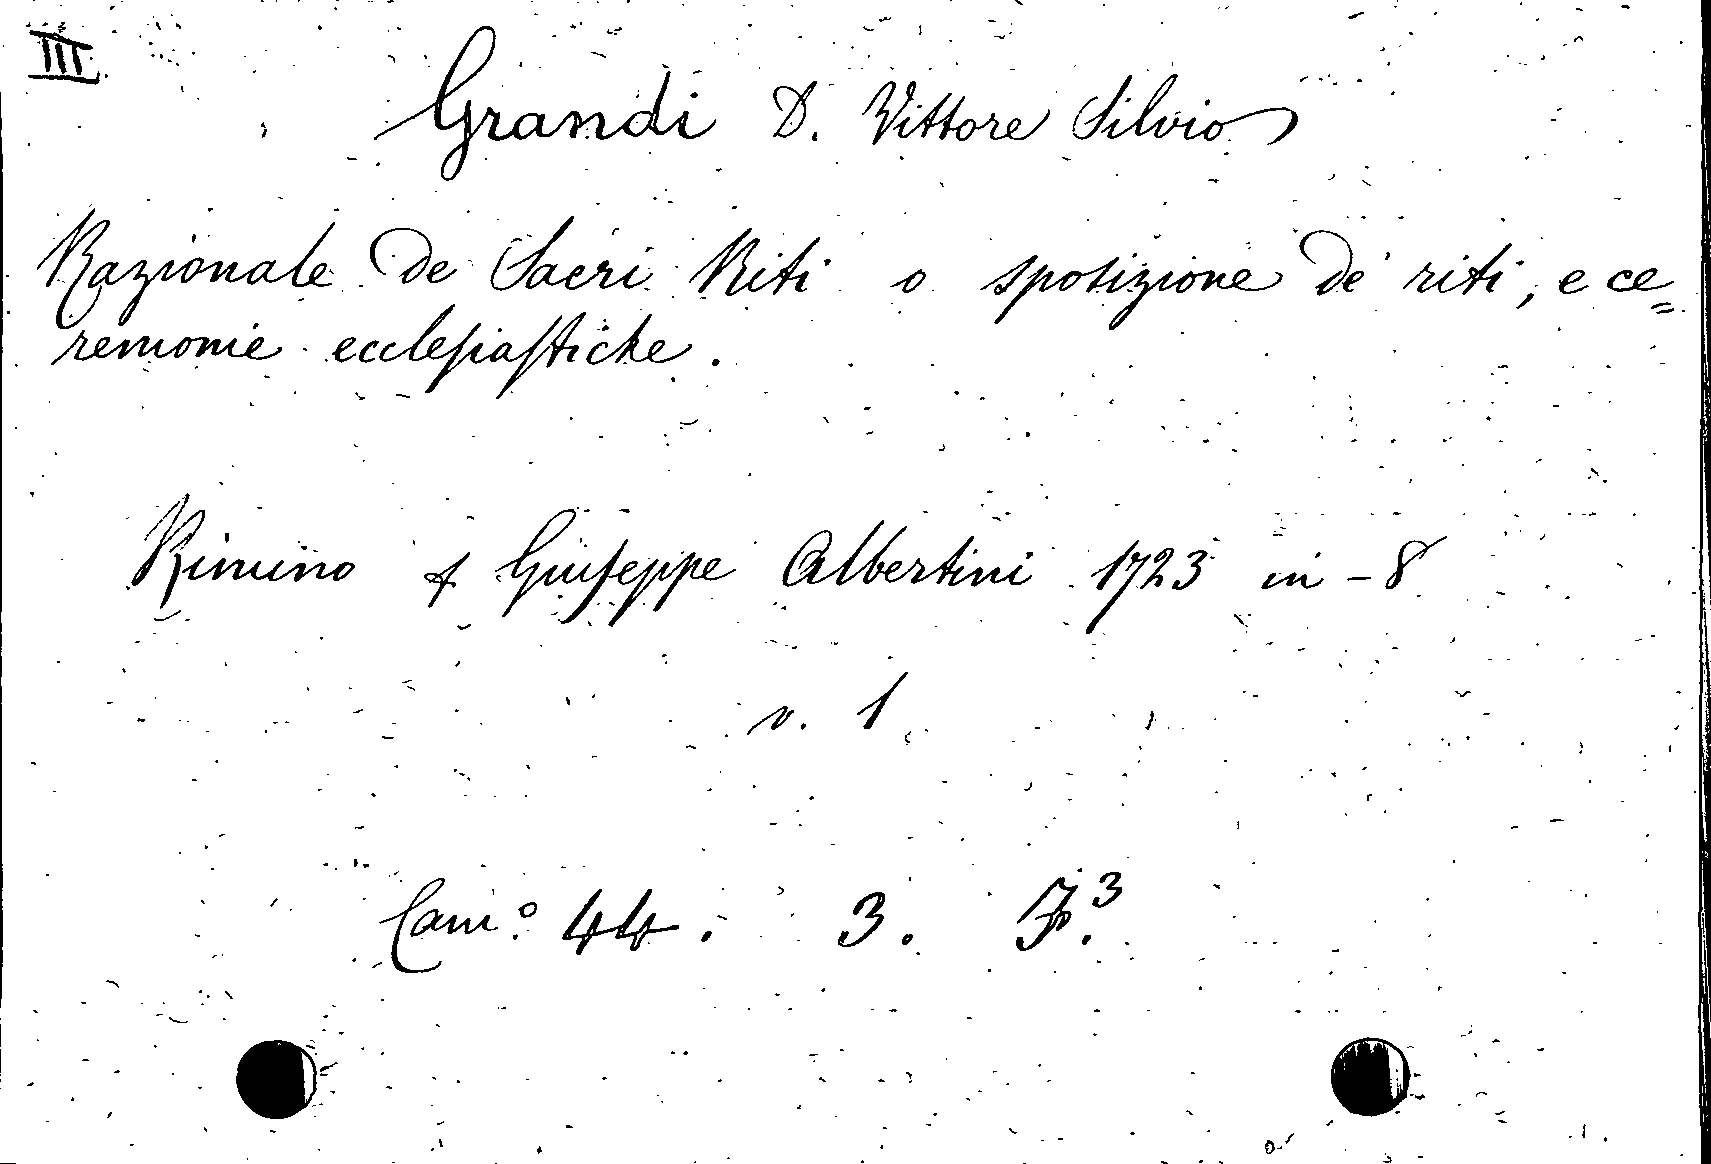 III
Grandi D. Vittore Silvio
Razionale de Sacri Riti o sposizione de' riti, e ce=
remonie ecclesiastiche.
Rimino Giuseppe Albertini 1723 in-8
v. 1
Cam.° 44. 3. F.³